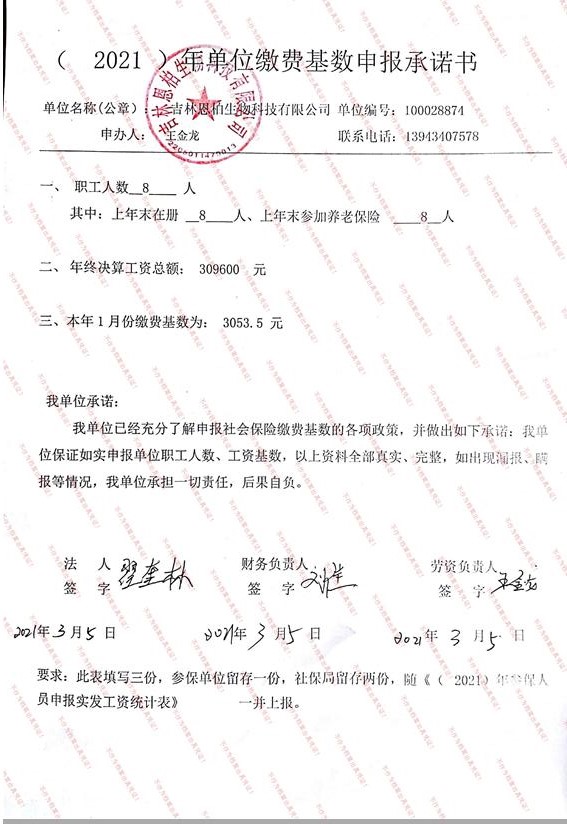 （ 2021 ）年单位缴费基数申报承诺书
单位名称(公章): 吉林恩柏生物科技有限公司 单位编号: 100028874
申办人: 王金龙 联系电话: 13943407578
一、 职工人数__8____ 人
其中: 上年末在册 __8____人、上年末参加养老保险 ____8__人
二、年终决算工资总额: 309600 元
三、本年1月份缴费基数为: 3053.5 元
我单位承诺:
我单位已经充分了解申报社会保险缴费基数的各项政策, 并做出如下承诺: 我单
位保证如实申报单位职工人数、工资基数, 以上资料全部真实、完整, 如出现漏报、瞒
报等情况, 我单位承担一切责任, 后果自负。
法 人 财务负责人 劳资负责人
签 字 签 字 签 字 王金龙
2021年3月5日 2021年3月5日 2021年3月5日
要求: 此表填写三份, 参保单位留存一份, 社保局留存两份, 随《( 2021) 年参保人
员申报实发工资统计表》 一并上报。